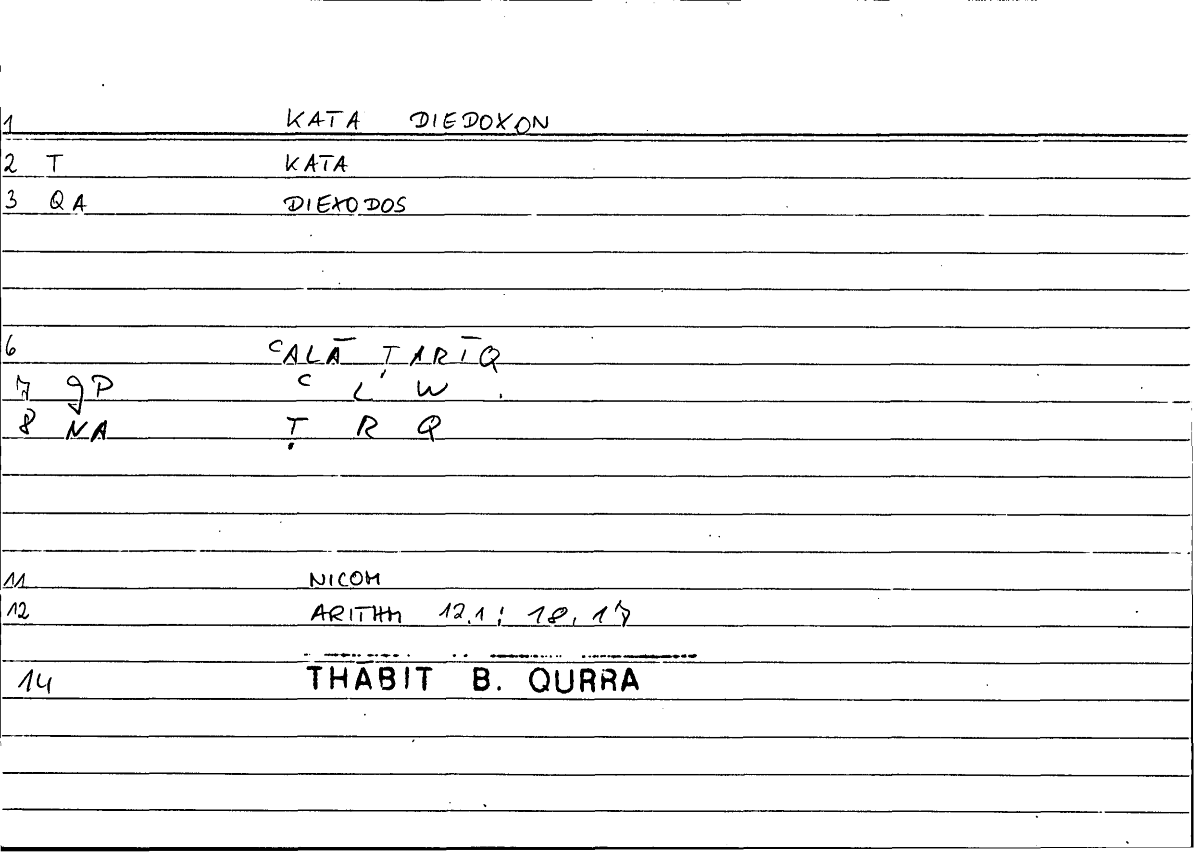 1 KATA DIEDOXON
2 T KATA
3 QA DIEXODOS
6 ᶜALĀ ṬARĪQ
7 gP ᶜ L W
8 NA Ṭ R Q
11 NICOM
12 ARITHM 12,1; 18,17
14 THĀBIT B. QURRA